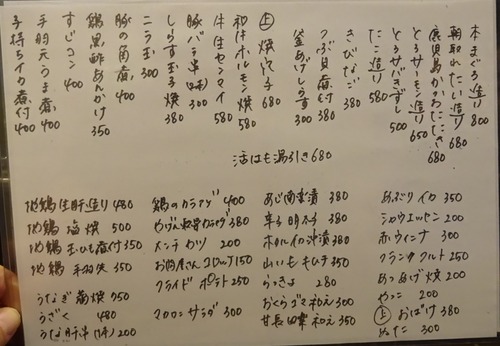 本まぐろ造り 800
朝取れたい造り 680
鹿児島かつおたたき 680
とろサーモン造り 650
とろサバきずし 500
たこ造り 580
きびなご 380
つぶ貝煮付 380
釜あげしらす 300
上 焼穴子 680
和牛ホルモン焼 580
牛生センマイ 580
豚バラ串(2本) 300
しらす玉子焼 380
ニラ玉 300
豚の角煮 400
鶏黒酢あんかけ 350
すじコン 400
手羽元うま煮 400
子持ちイカ煮付 400
活はも湯引き 680
地鶏生肝造り 480
地鶏 塩焼 500
地鶏 玉ひも煮付 350
地鶏 手羽先 350
うなぎ蒲焼 750
うざく 480
うなぎ肝串(1本) 200
鶏のカラアゲ 400
やげん軟骨カラアゲ 380
メンチカツ 200
お肉屋さんコロッケ 150
フライドポテト 250
マカロニサラダ 300
あじ南蛮漬 380
辛子明太子 380
ホタルイカ沖漬 380
山いもキムチ 350
らっきょ 280
おくらゴマ和え 300
甘長田楽和え 350
あぶりイカ 350
シャウエッセン 200
赤ウィンナ 300
フランクフルト 250
あつあげ焼 200
やっこ 200
上 おばけ 380
ぬた 300